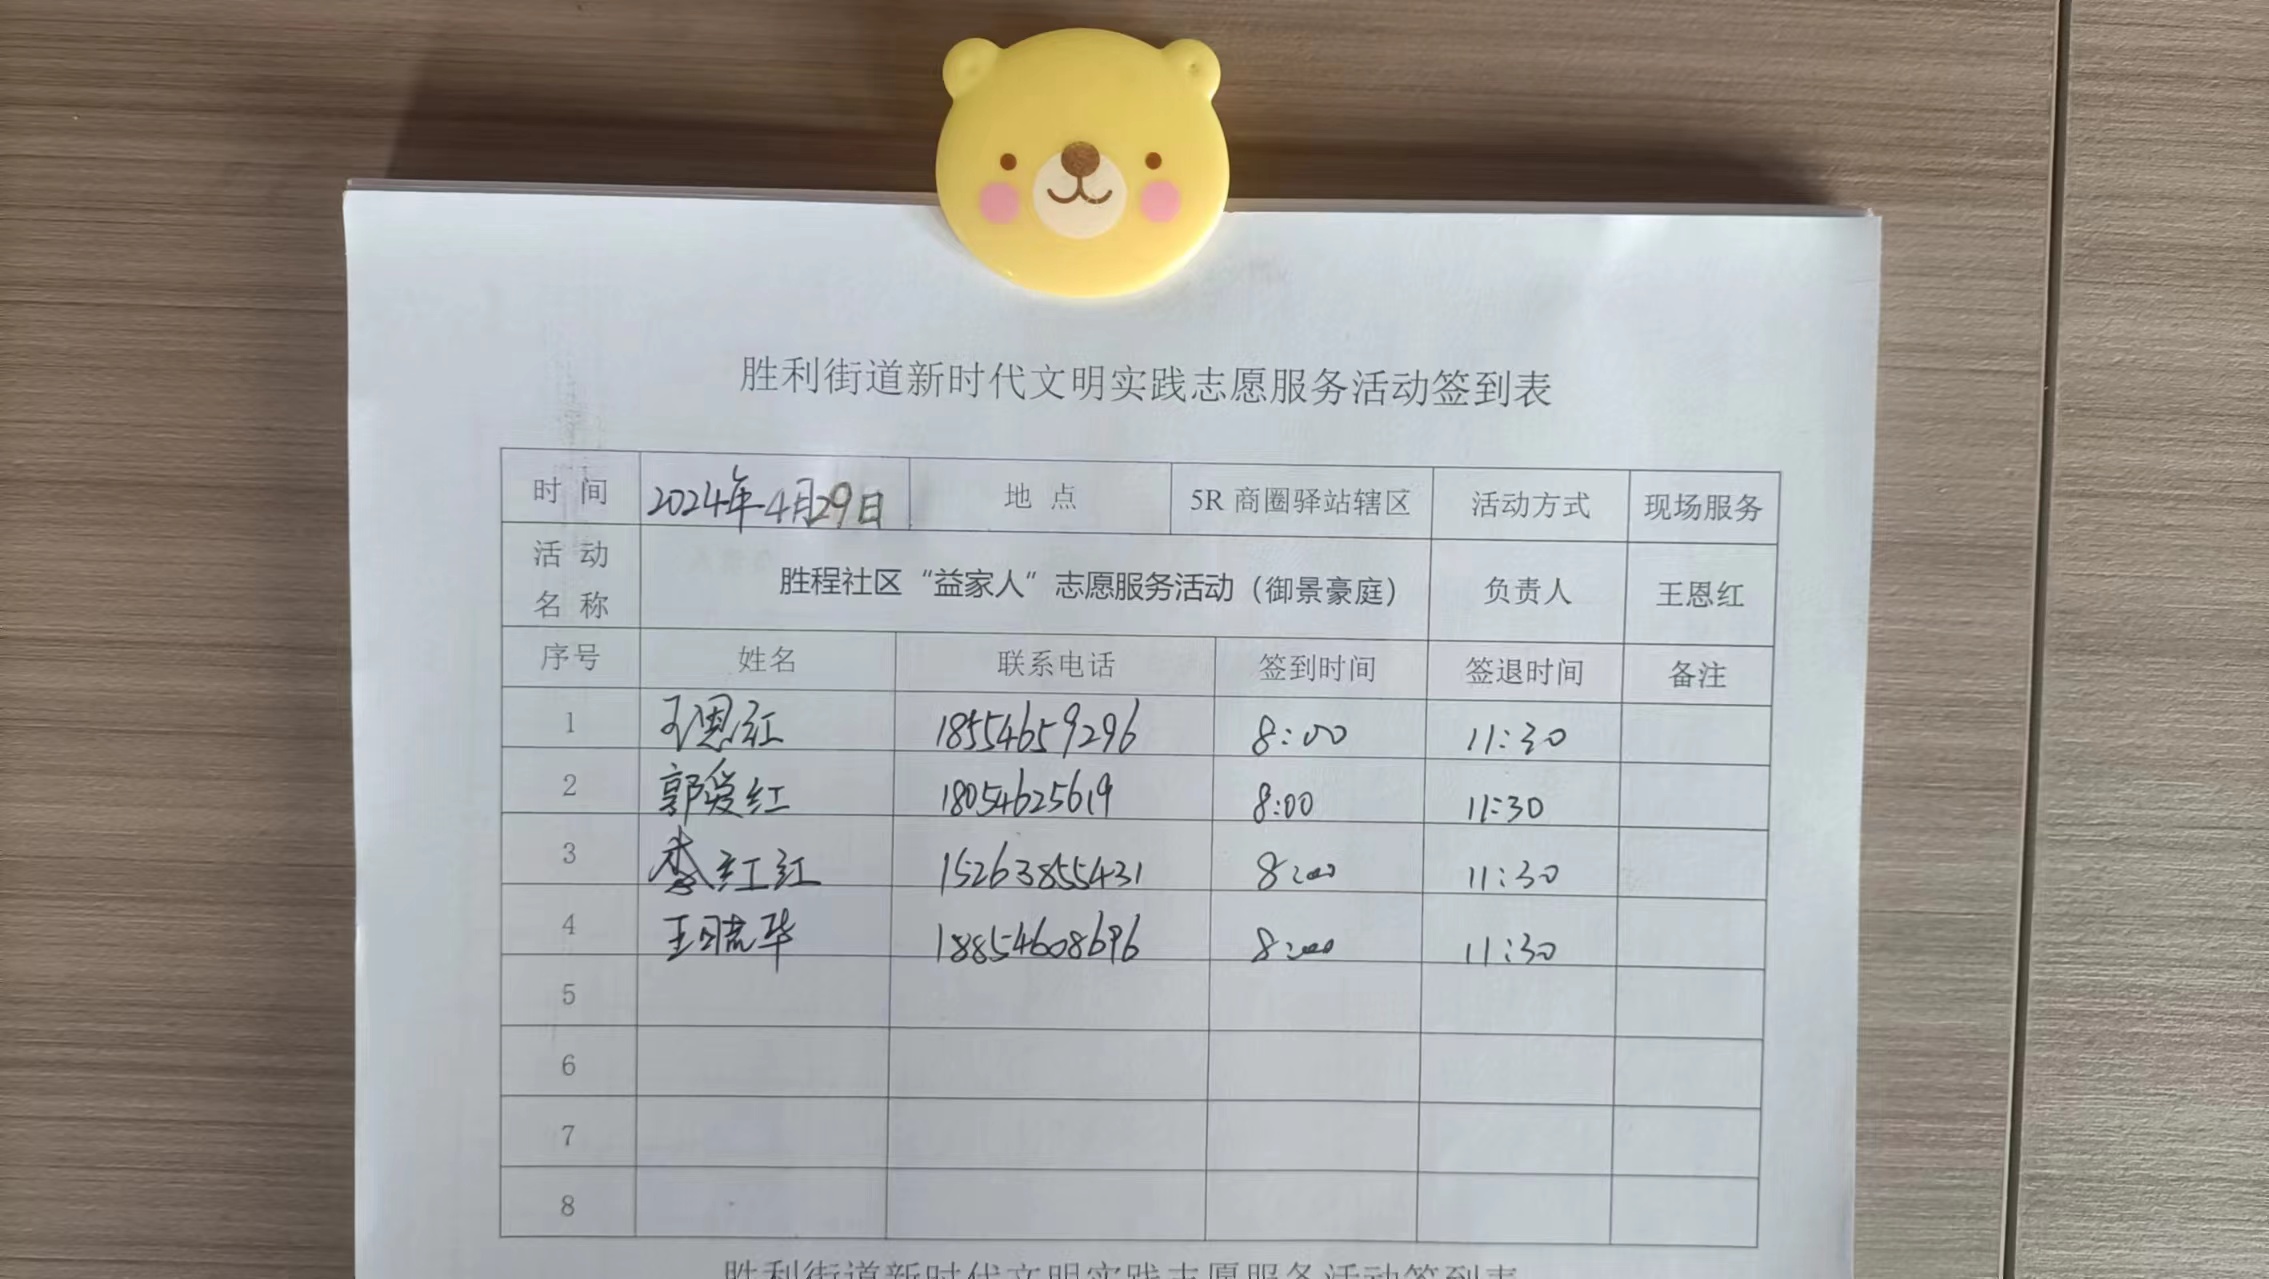 胜利街道新时代文明实践志愿服务活动签到表
时 间 2024年4月29日 地 点 5R 商圈驿站辖区 活动方式 现场服务
活 动 名 称 胜程社区“益家人”志愿服务活动（御景豪庭） 负责人 王恩红
序号 姓名 联系电话 签到时间 签退时间 备注
1 王恩红 18554659296 8:00 11:30
2 郭爱红 18054625619 8:00 11:30
3 李红红 15263855431 8:00 11:30
4 王晓华 18854608696 8:00 11:30
5
6
7
8
胜利街道新时代文明实践志愿服务活动签到表